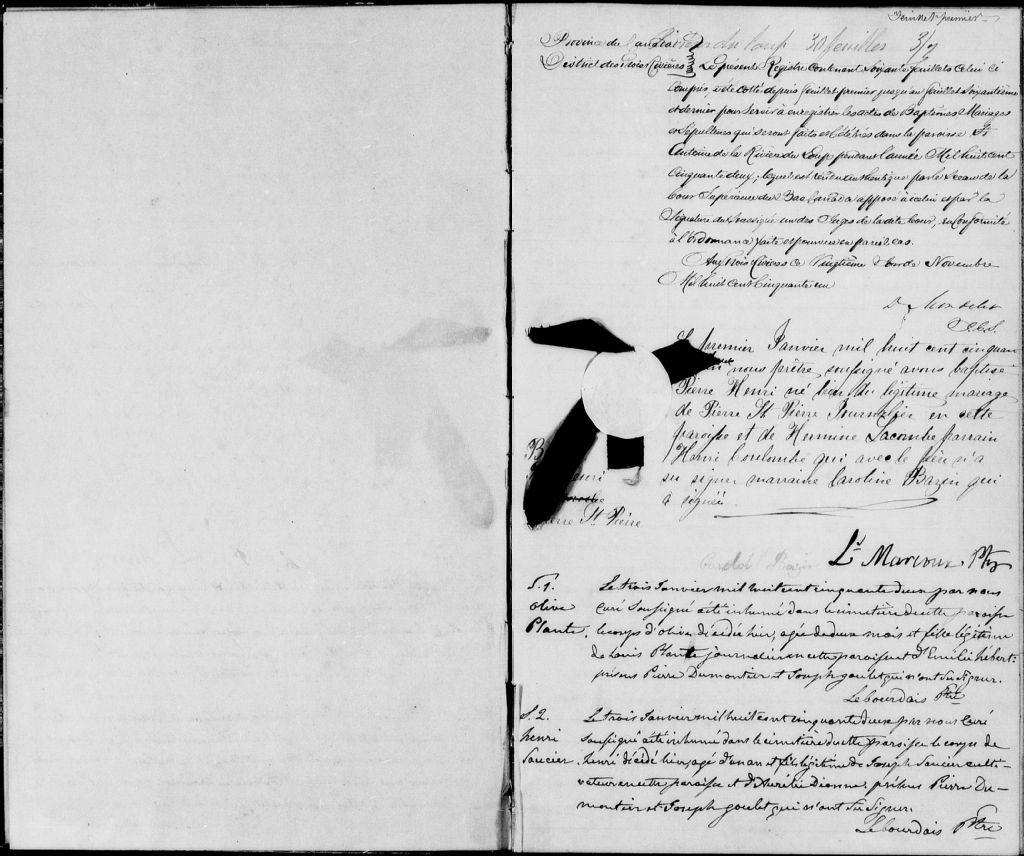 Feuillet premier
Province du Canada du Loup 30 feuilles 3/9
District des Trois Rivières Le présent Registre contenant Soixante feuillets celui ci
compris, a été cotté depuis feuillet premier jusqu'au feuillet soixantième
et dernier pour servir à enregistrer les actes de Baptêmes Mariages
et Sépultures qui seront faits et célébrés dans la paroisse St
Antoine de la Rivière du Loup pendant l'année Mil huit cent
cinquante deux, lequel est rendu authentique par le Sceau de la
Cour Supérieure du Bas Canada apposé à celui et par la
Signature du Soussigné un des Juges de la dite Cour, en conformité
à l'ordonnance faite et pourvue en pareil cas.
Aux Trois Rivières ce Vingtième Jour de Novembre
Mil huit cent cinquante un
D Mondelet
J.C.S.
Le premier Janvier mil huit cent cinquan
nous prêtre soussigné avons baptisé
Pierre Henri né hier du légitime mariage
de Pierre St Pierre Journalier en cette
paroisse et de Hermine Lacombe parrain
Henri Coulombe qui avec le père n'a
su signer marraine Caroline Bazin qui
a signé.
B
Henri
Pierre St Pierre
Bazin
Lˢ Marcoux Ptre
S. 1.
Olive
Plante
Le trois Janvier mil huit cent cinquante deux par nous
curé soussigné a été inhumé dans le cimetière de cette paroisse
le corps d'olive décédée hier, agée de deux mois et fille légitime
de Louis Plante journalier en cette paroisse et d'Emilie hébert
présens Pierre Dumontier et Joseph goulet qui n'ont su signer.
Lebourdais Ptre
S. 2.
henri
Saucier
Le trois Janvier mil huit cent cinquante deux par nous curé
soussigné a été inhumé dans le cimetière de cette paroisse le corps de
henri décédé hier, agé d'un an et fils légitime de Joseph Saucier culti-
vateur en cette paroisse et d'Aurélie Dionne, présens Pierre Du-
montier et Joseph goulet qui n'ont su signer.
Lebourdais Ptre